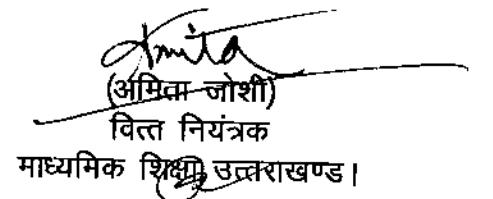 Amita
(अमिता जोशी)
वित्त नियंत्रक
माध्यमिक शिक्षा, उत्तराखण्ड।